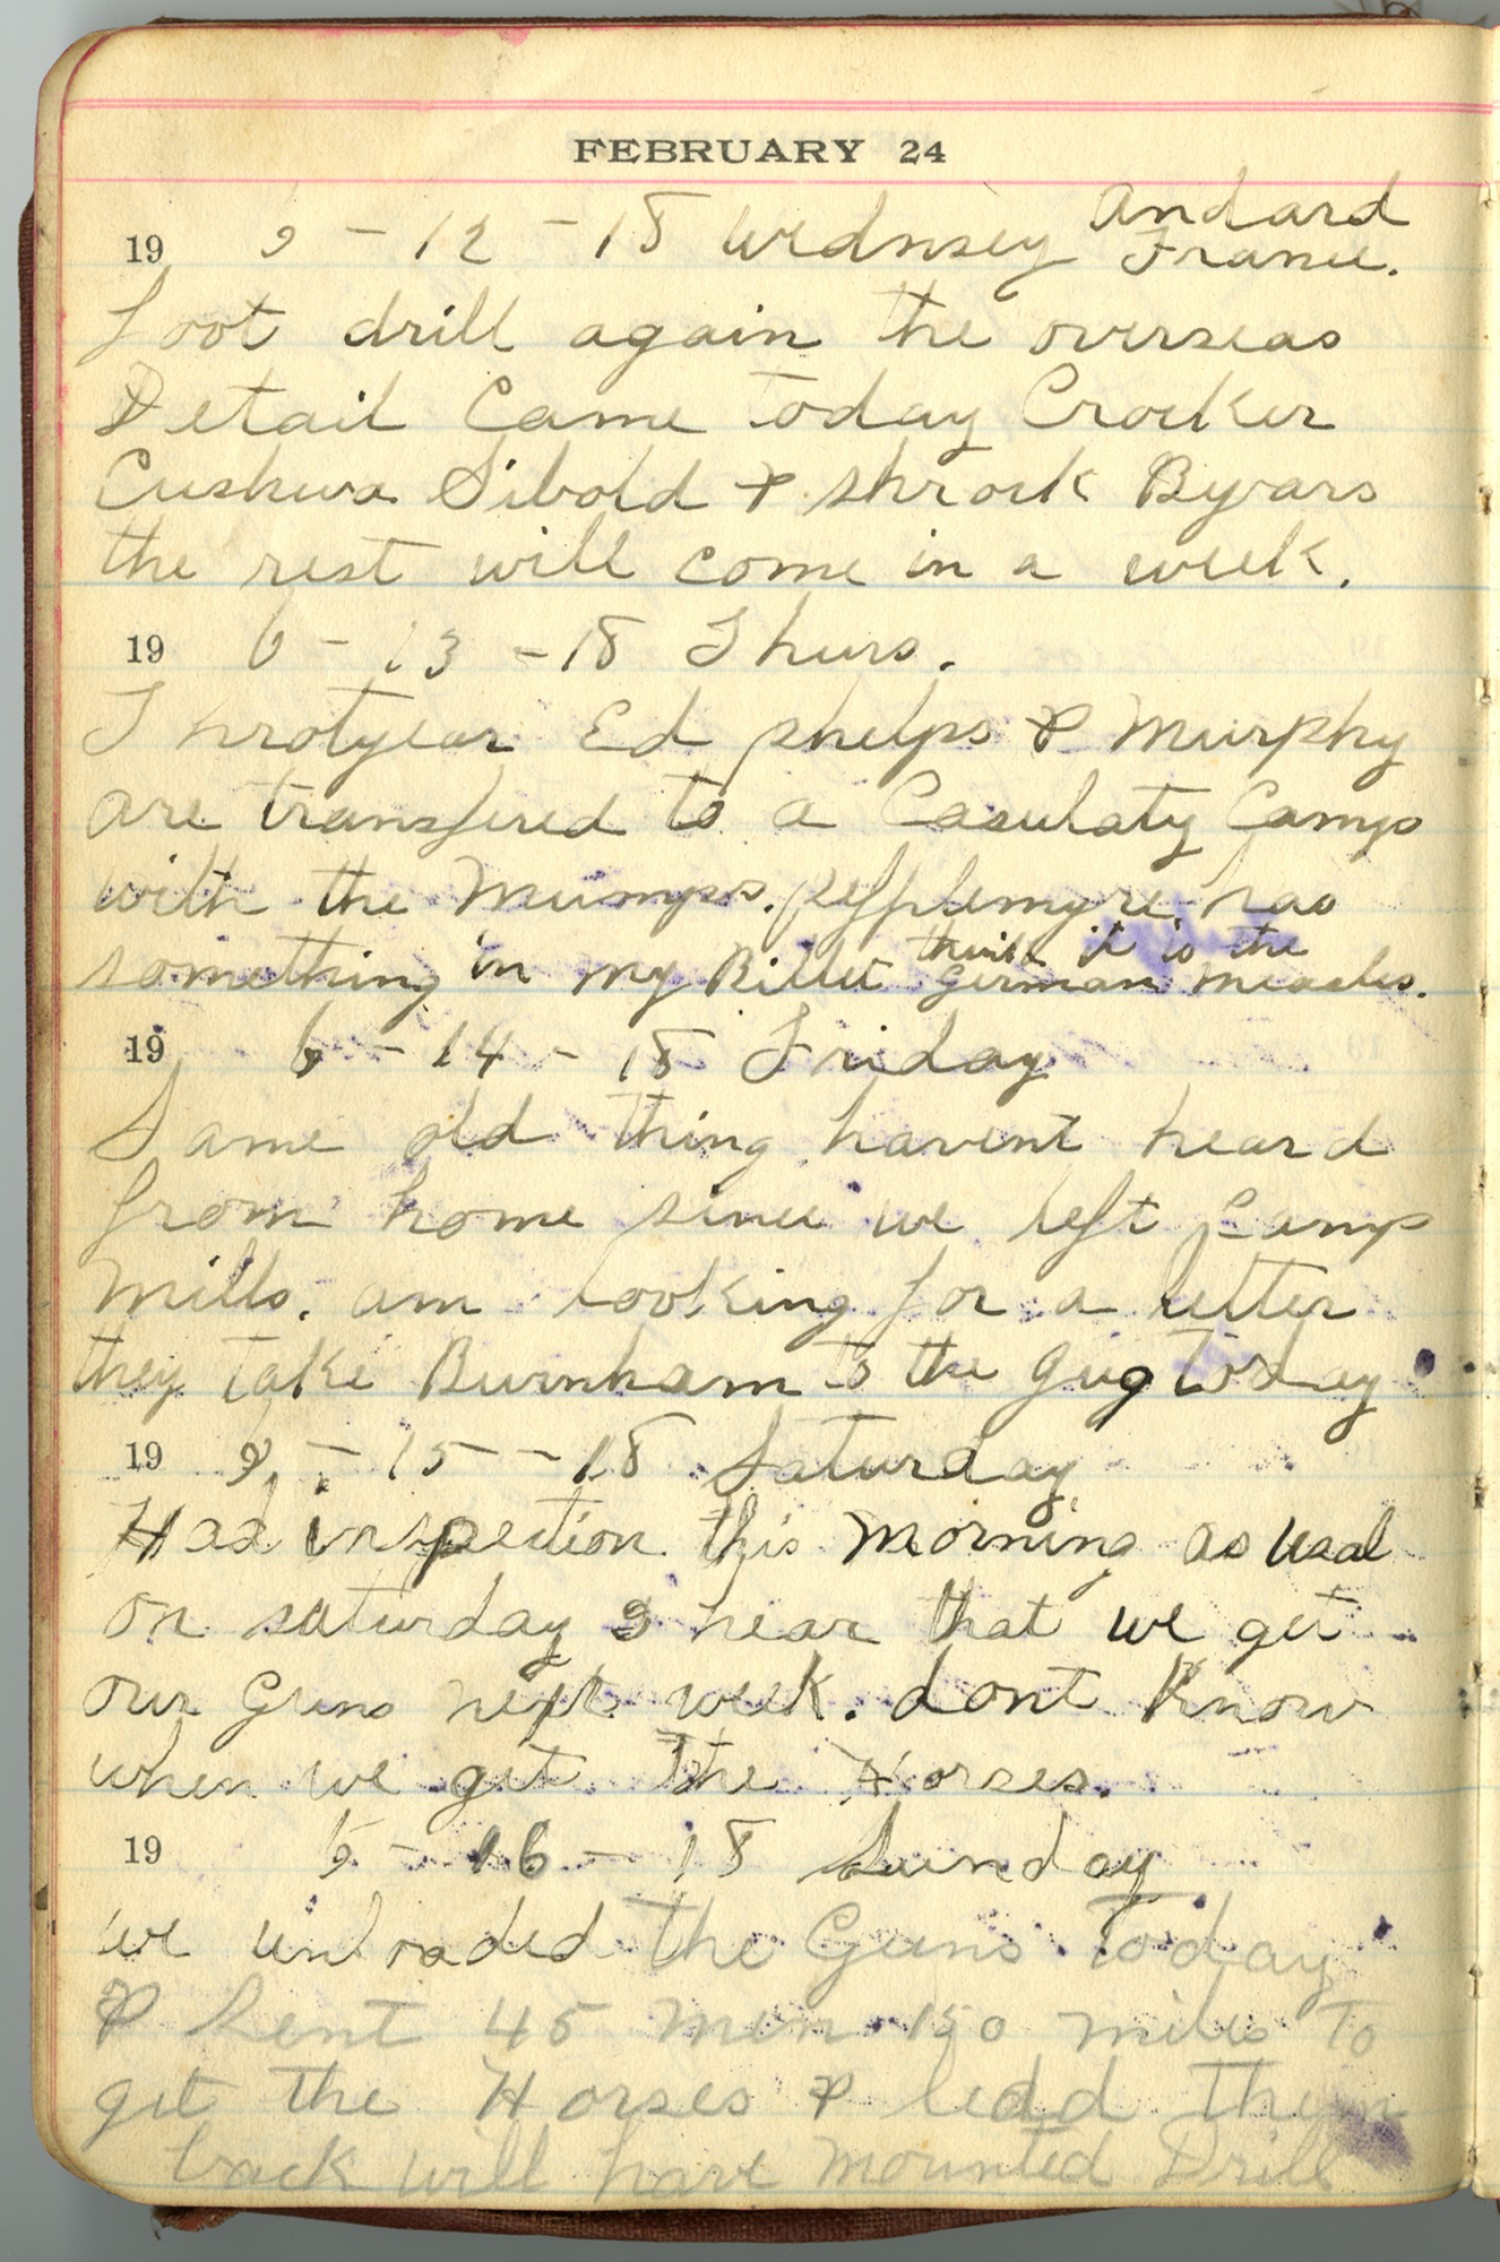 FEBRUARY 24
Andard
19 6 - 12 - 18 Wednsey France.
Foot drill again the overseas
Detail Came today Crocker
Cushwa Sibold & Shrock Byars
the rest will come in a week.
19 6 - 13 - 18 Thurs.
Ed phelps & Murphy
are transfered to a Casulaty Camp
with the Mumps. has
think it is the
something in my Billet German measles.
19 6 - 14 - 18 Friday
Same old thing havent heard
from home since we left Camp
Mills. am looking for a letter
they take Burnham to the Gug Today
19 6 - 15 - 18 Saturday
Had inspection this morning as usal
on saturday I hear that we get
our Guns next week. dont Know
when we get the Horses.
19 6 - 16 - 18 Sunday
we unloaded the Guns Today
& Sent 45 men 150 miles To
get the Horses & leadd them
back will have mounted Drill